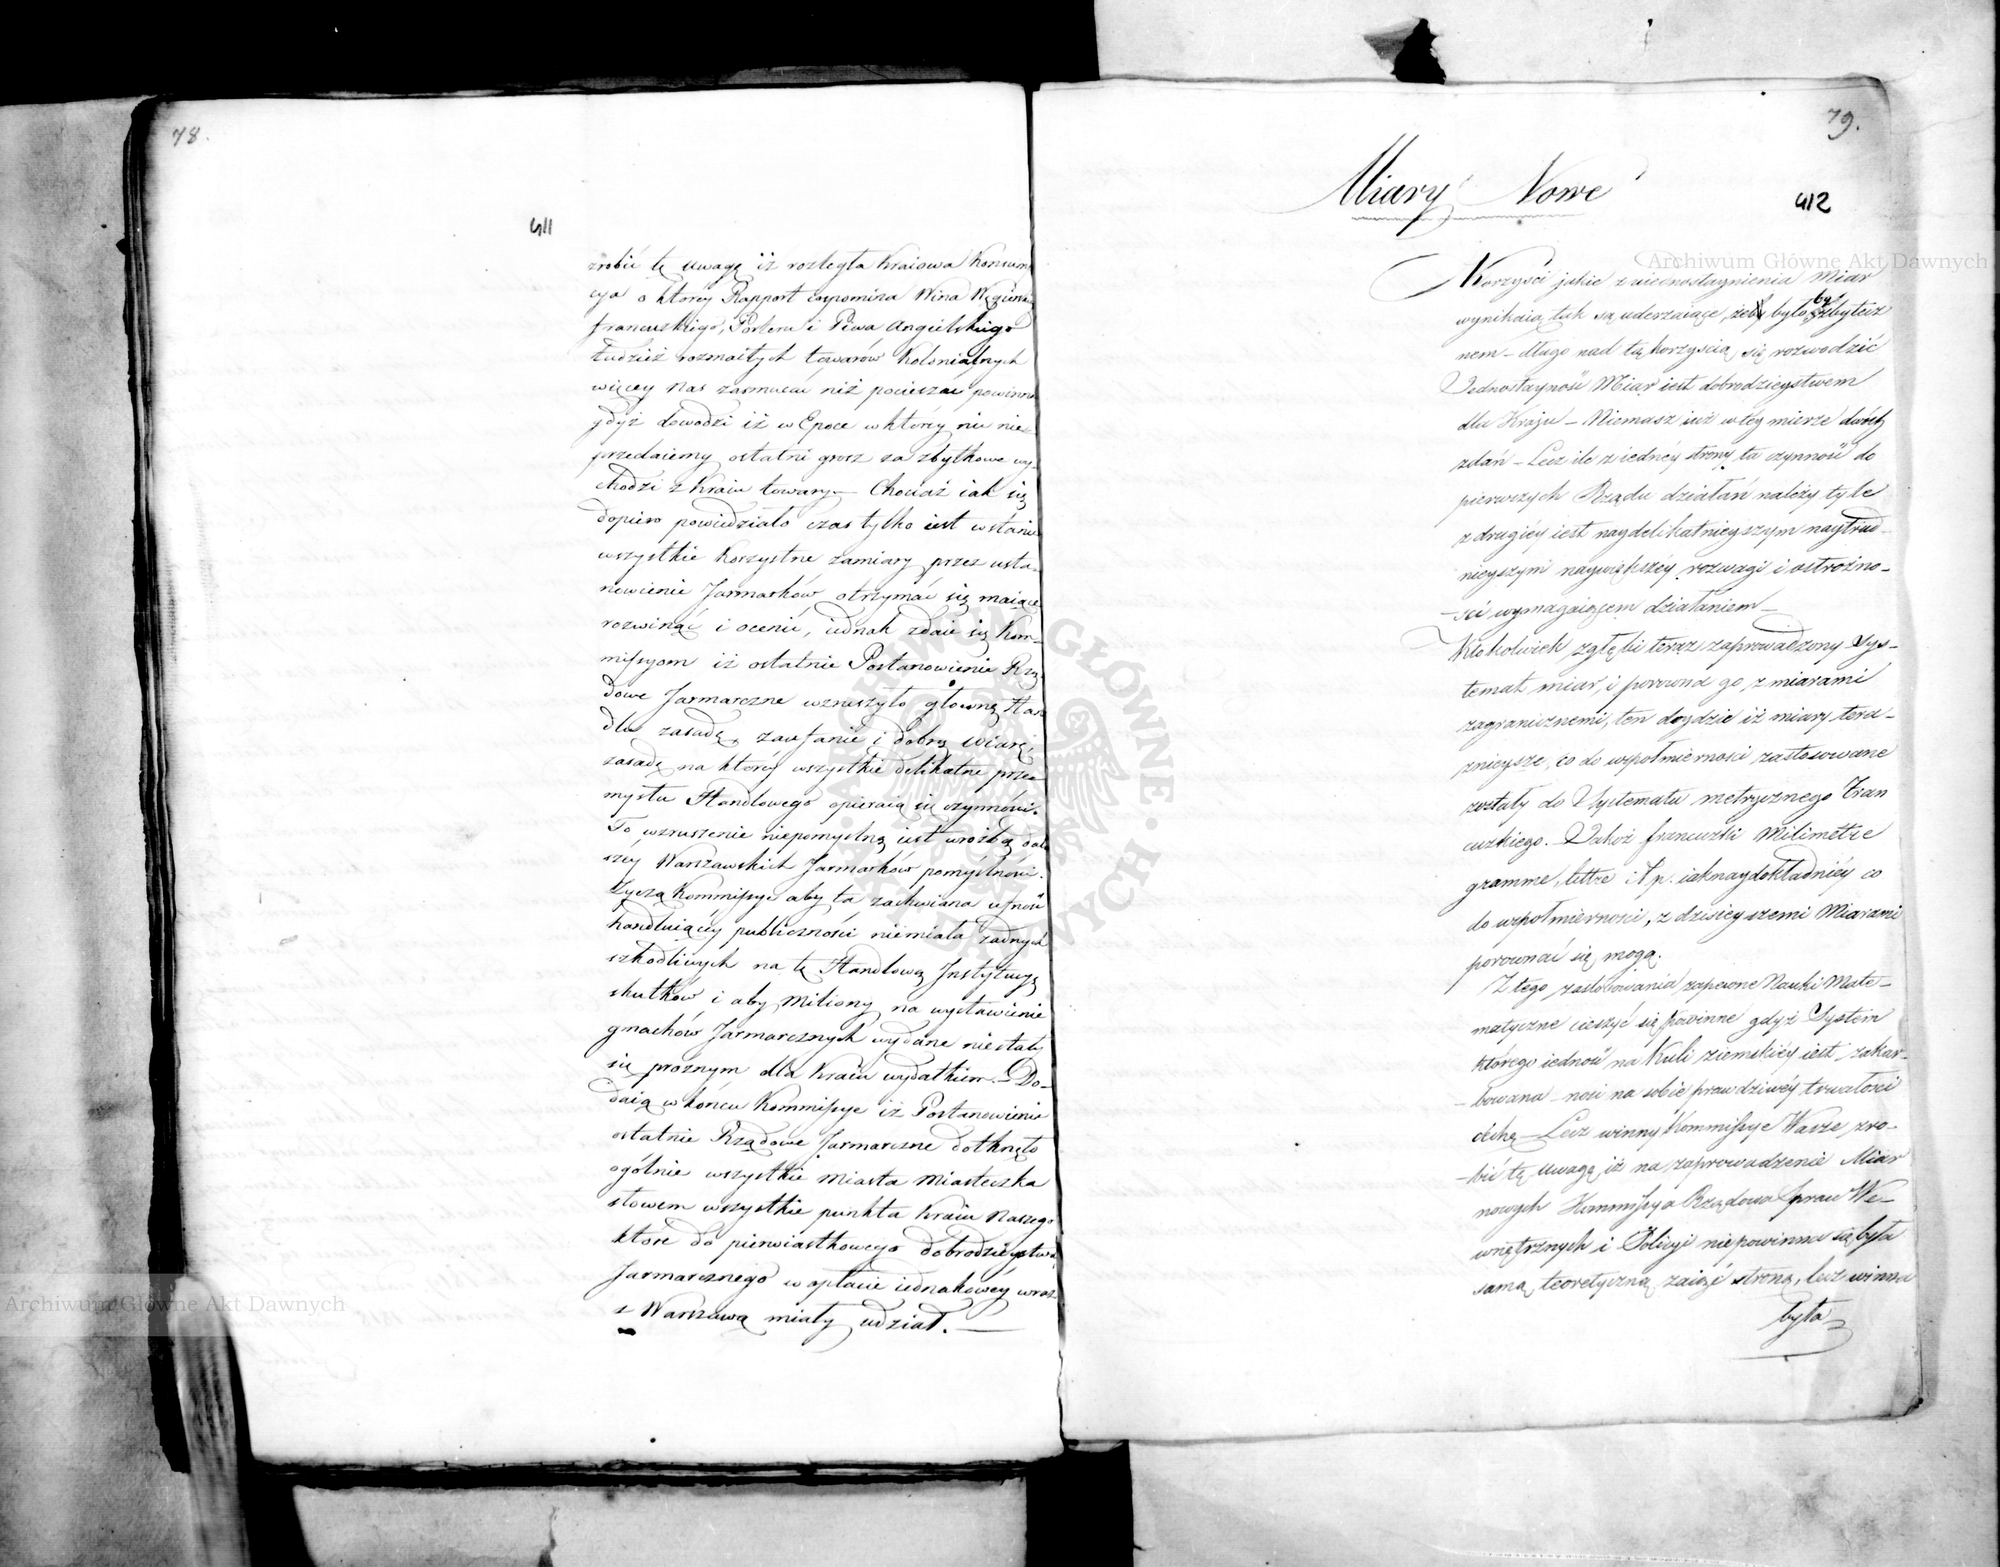 78.
411
zrobić tę uwagę iż rozległa kraiowa konsum
cya o ktorey Rapport wspomina Wina Węgiersk
francuskiego, Porteru i Piwa Angielskiego
tudzież rozmaitych towarów kolonialnych
więcey nas zasmucać niż pocieszać powinna
gdyż dowodzi iż w Epoce w którey nic nie
przedaiemy ostatni grosz za zbytkowe wy-
chodzi z kraiu towary – Chociaż iak się
dopiero powiedziało czas tylko iest w stanie
wszystkie korzystne zamiary przez usta-
nowienie Jarmarków otrzymać się maiące
rozwinąć i ocenić, iednak zdaie się Kom-
missyom iż ostatnie Postanowienie Rzą
dowe Jarmarczne wzruszyło główną Han
dlu zasadę, zaufanie i dobrą wiarę,
zasadę na którey wszystkie delikatne prze
mysłu Handlowego opieraią się czynności.
To wzruszenie niepomyślną iest wrożbą dal
szey Warszawskich Jarmarków pomyślności.
Życzą Kommissye aby ta zachwiana ufność
handluiącéy publiczności niemiała żadnych
szkodliwych na tę Handlową Instytucyę
skutków, i aby Miliony na wystawienie
gmachów Jarmarcznych wydane niestały
się prożnym dla kraiu wydatkiem. – Do-
daią w końcu Kommissye iż Postanowienie
ostatnie Rządowe Jarmarczne dotknęło
ogólnie wszystkie miasta Miasteczka
słowem wszystkie punkta kraiu Naszego
ktore do pierwiastkowego dobrodzieystwa
Jarmarcznego w opłacie iednakowéy wraz
z Warszawą miały udział. —
79.
Miary Nowe
412
Korzyści jakie z uiednostaynienia Miar
wynikaią tak są uderzaiące, że było by zbytecz
nem – długo nad tą korzyścią się rozwodzić
Jednostayność Miar iest dobrodzieystwem
dla Kraju – Niemasz iuż w téy mierze dwóch
zdań – Lecz ile z iednéy strony ta czynność do
pierwszych Rządu działań należy tyle
z drugiéy iest naydelikatnieyszym naytrud-
nieyszym naywiększéy rozwagi i ostrożno-
-ści wymagaiącem działaniem –
Ktokolwiek zgłębi teraz zaprowadzony Sys-
temat miar, i porowna go z miarami
zagranicznemi, ten doydzie iż miary tera-
znieysze, co do wspołmierności zastosowane
zostały do Systematu metrycznego Fran
cuzkiego. Jakoż francuzki Milimetre
gramme, littre i t.p. iaknaydokładniéy co
do wspołmierności, z dzisieyszemi Miarami
porownać się mogą.
Z tego zastosowania zapewne Nauki Mate-
matyczne cieszyć się powinne gdyż System
którego iedność na Kuli ziemskiéy iest zakar-
-bowana – nosi na sobie prawdziwéy trwałości
cechę – Lecz winny Kommissye Wasze zro-
-bić tę uwagę, iż na zaprowadzenie Miar
nowych Kommissya Rządowa Spraw We-
wnętrznych i Policyi niepowinna się była
samą teoretyczną zaiąć stroną, lecz winna
była
Archiwum Główne Akt Dawnych
Archiwum Główne Akt Dawnych